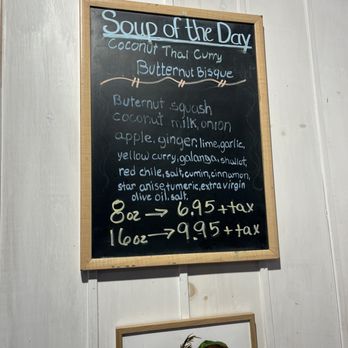 Soup of the Day
Coconut Thai Curry
Butternut Bisque
Buternut squash
coconut milk, onion
apple, ginger, lime, garlic,
yellow curry, galanga, shallot,
red chile, salt, cumin, cinnamon,
star anise, tumeric, extra virgin
olive oil, salt.
8oz → 6.95 + tax
16oz → 9.95 + tax